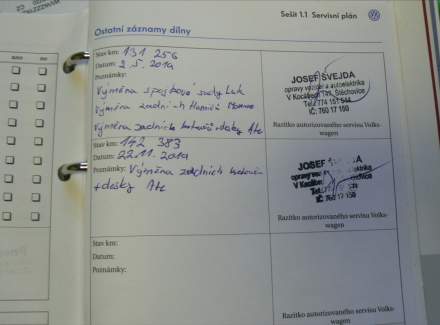 Sešit 1.1 Servisní plán
Ostatní záznamy dílny
Stav km: 131 256
Datum: 2.5.2019
Poznámky:
Výměna spojkové sady Luk
Výměna zadních
Výměna zadních kotoučů + desky Ate
JOSEF ŠVEJDA
opravy vozidel a autoelektrika
V Kocábce 147, Štěchovice
Tel: 774 151 544
IČ: 760 17 150
Razítko autorizovaného servisu Volks-
wagen
Stav km: 142 383
Datum: 22.11.2019
Poznámky: Výměna zadních kotoučů
+ desky Ate
JOSEF
Tel:
IČ: 760 17 150
Razítko autorizovaného servisu Volks-
wagen
Stav km:
Datum:
Poznámky:
Razítko autorizovaného servisu Volks-
wagen